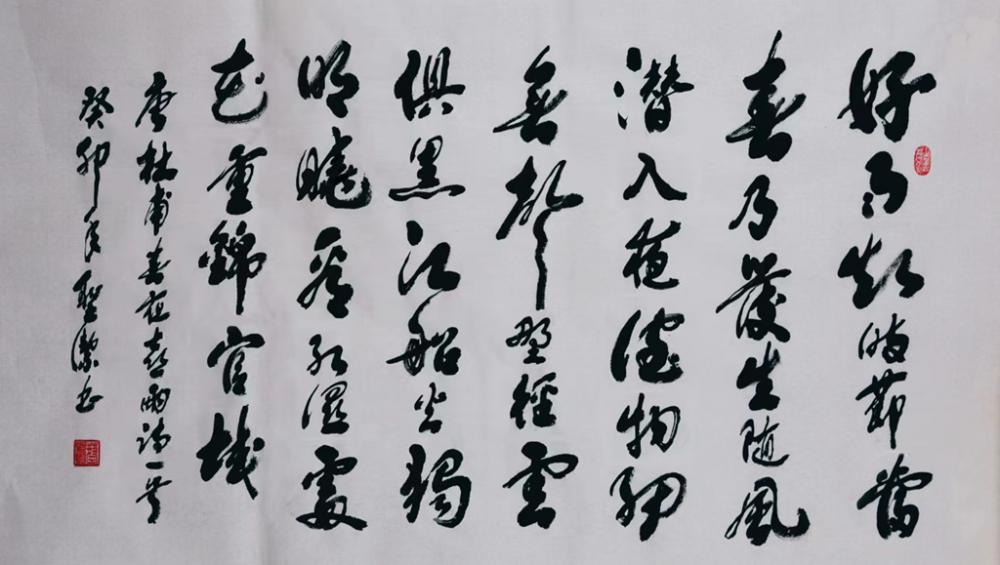 好雨知時節當
春乃發生隨風
潛入夜潤物細
無聲野徑雲
俱黑江船火獨
明曉看紅濕處
花重錦官城
唐杜甫春夜喜雨詩一首
癸卯年聖潔書